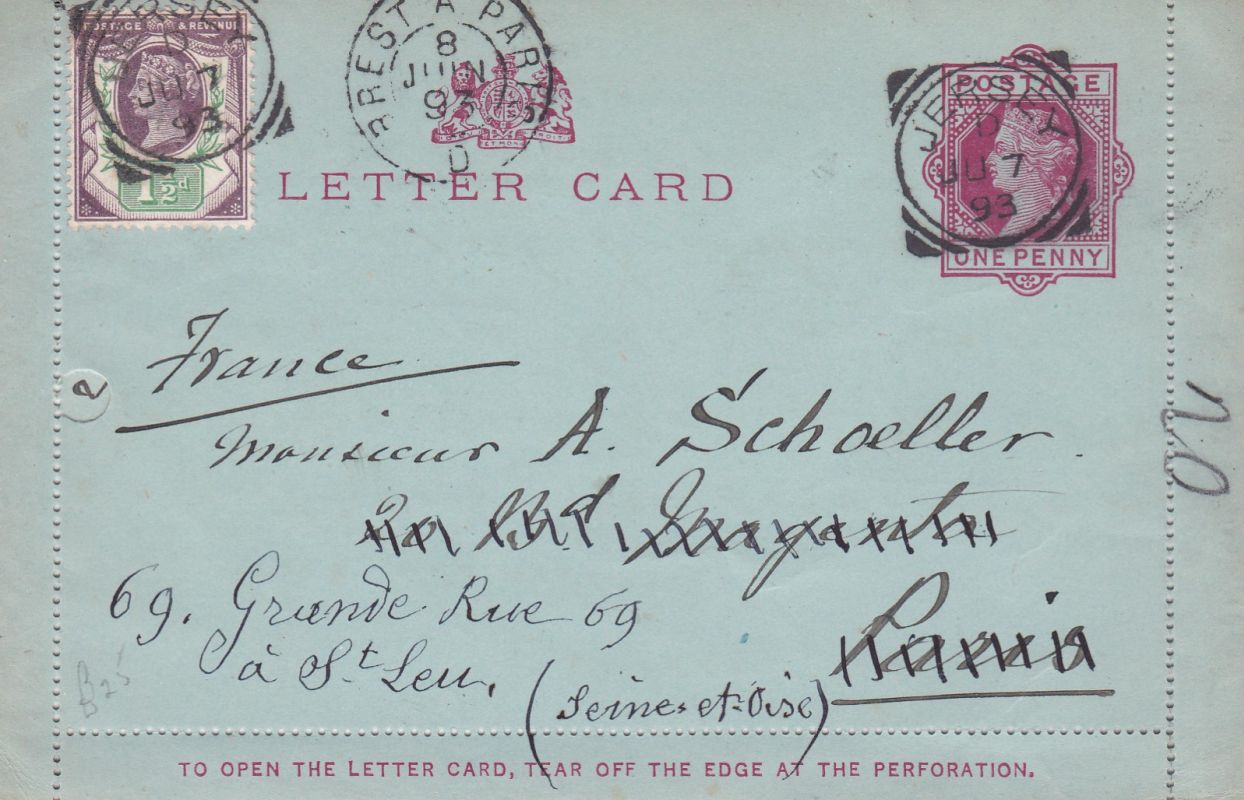 POSTAGE & REVENUE
1½d
JERSEY
D
JU 7
93
BREST A PARIS
8
JUIN
93
D
LETTER CARD
JERSEY
D
JU 7
93
POSTAGE
ONE PENNY
France
2
Monsieur A. Schoeller
Bd Magenta
Paris
69. Grande Rue 69
à St Leu, (Seine-et-Oise)
B25
TO OPEN THE LETTER CARD, TEAR OFF THE EDGE AT THE PERFORATION.